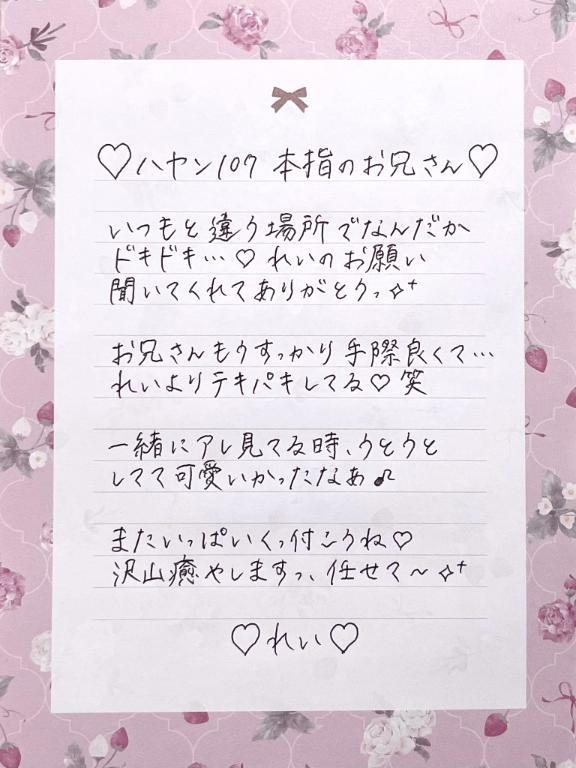 ♡ハヤン107 本指のお兄さん♡
いつもと違う場所でなんだか
ドキドキ…♡ れいのお願い
聞いてくれてありがとうっ✧⁺
お兄さんもうすっかり手際良くて…
れいよりテキパキしてる♡笑
一緒にアレ見てる時、うとうと
してて可愛いかったなあ♫
またいっぱいくっ付こうね♡
沢山癒やしますっ、任せて〜✧⁺
♡れい♡